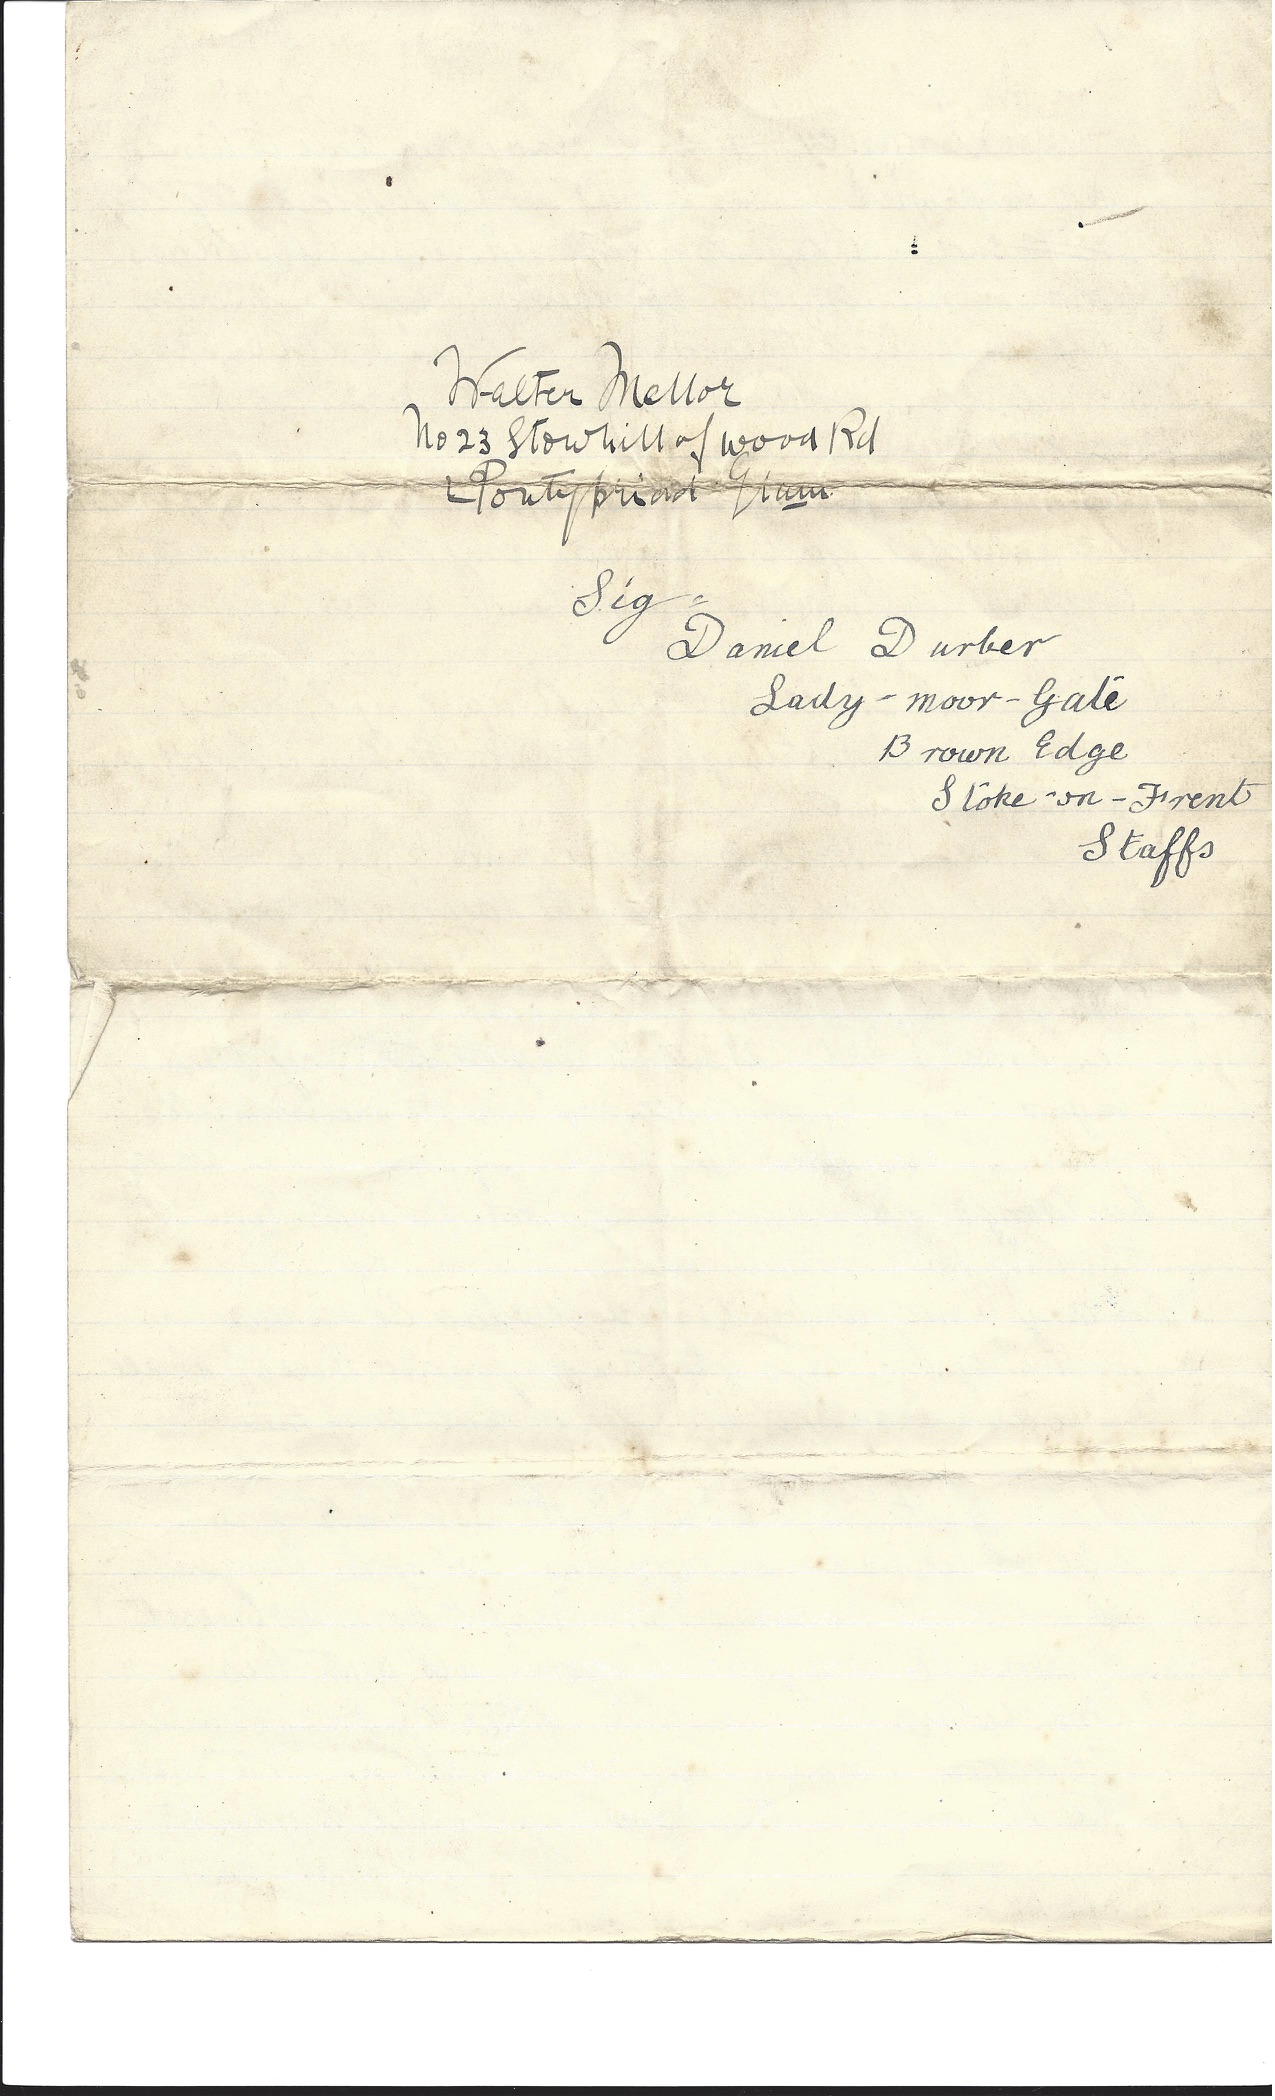 Walter Mellor
No 23 Stowhill of wood Rd
Pontypriad Glam
Sig -
Daniel Durber
Lady - moor - Gate
Brown Edge
Stoke - on - Trent
Staffs